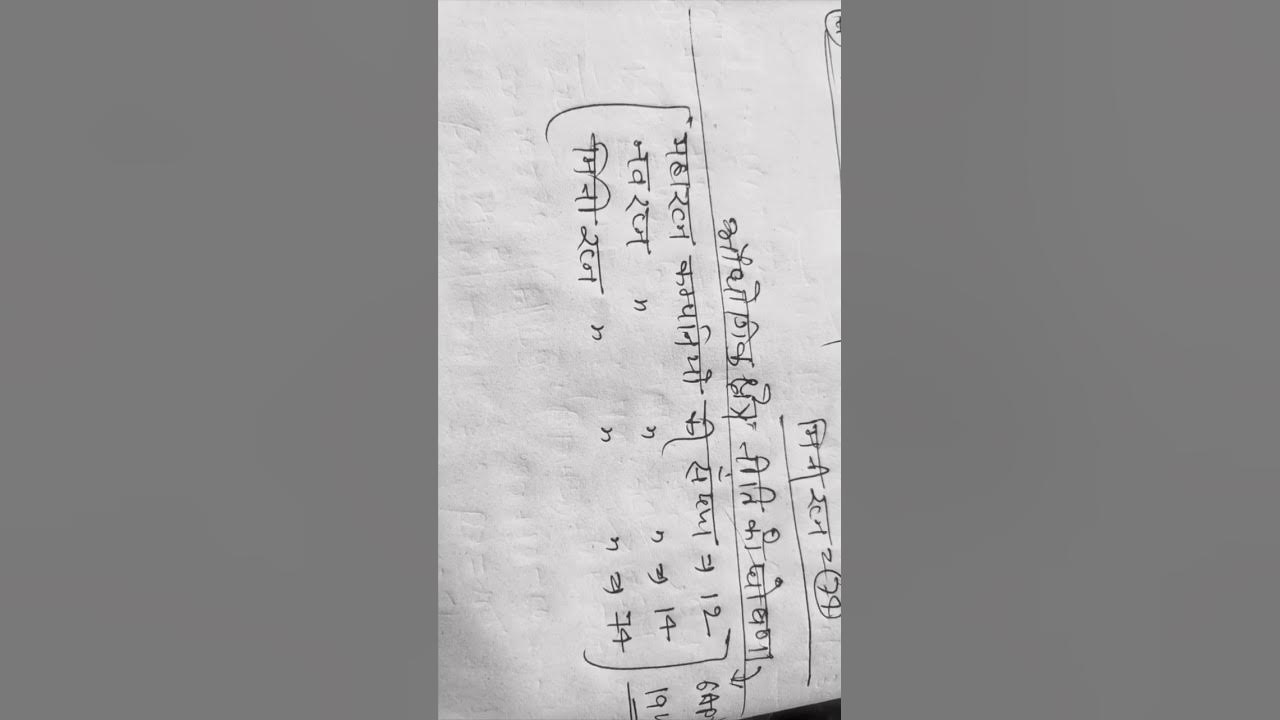 मिनी रत्न = 74
औद्योगिक क्षेत्र नीति की घोषणा
6Ap
महारत्न कम्पनियों की संख्या = 12
19
नवरत्न " " " = 14
मिनी रत्न " " " = 74